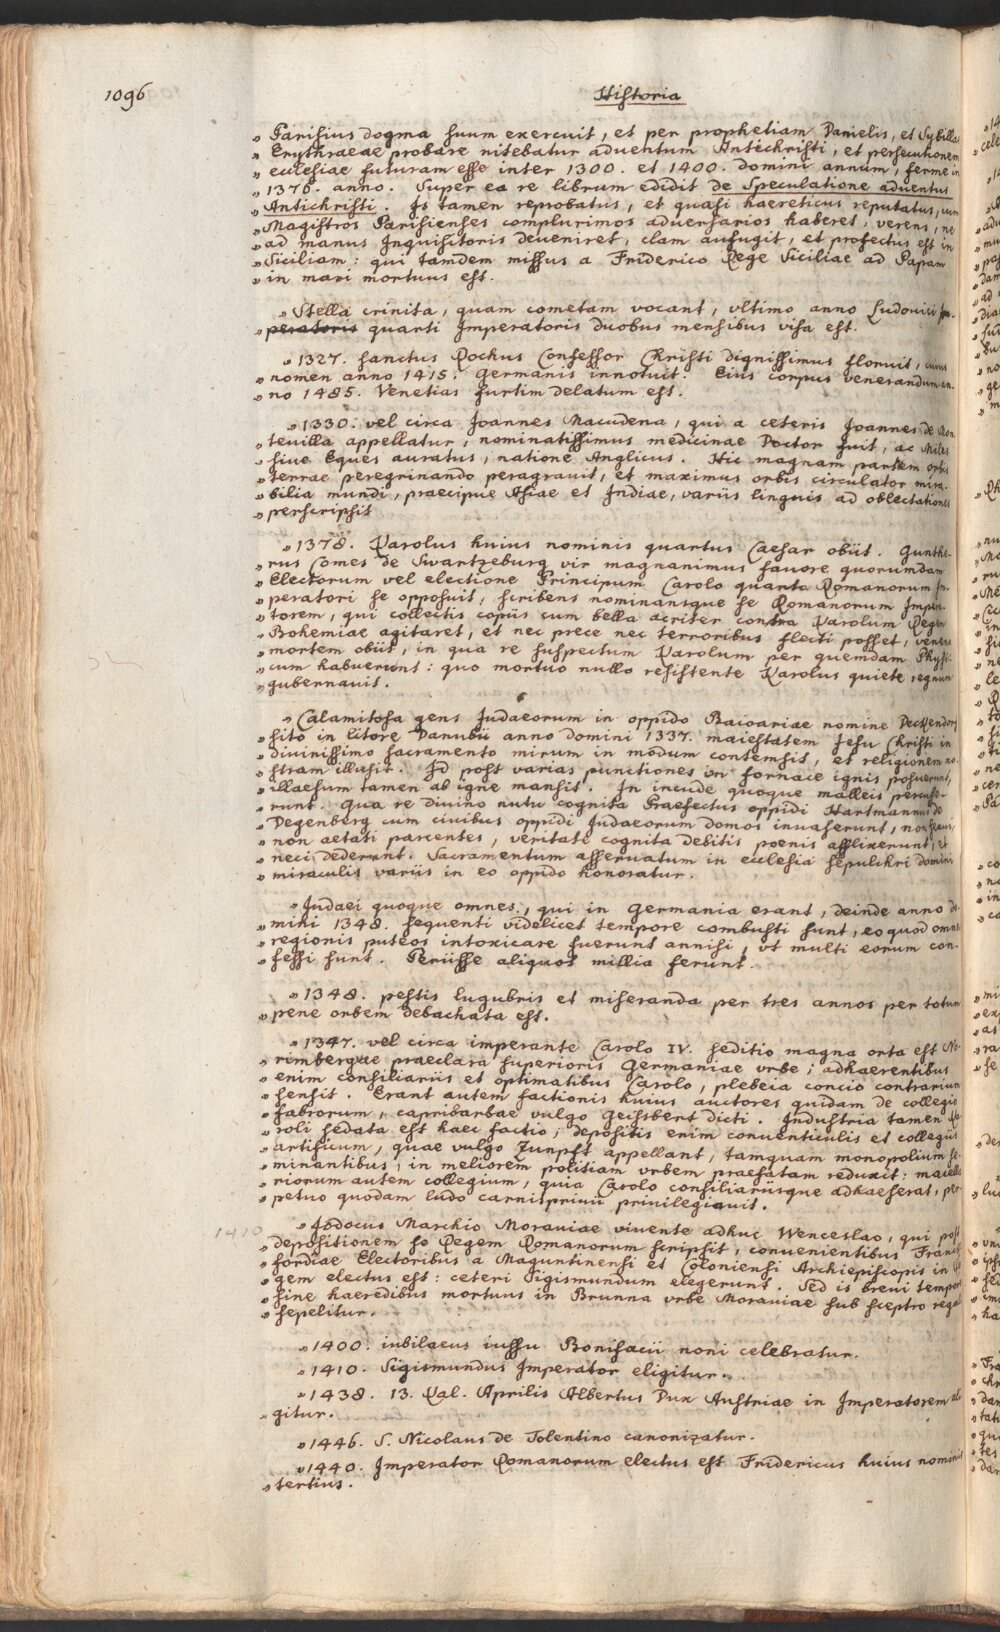 1096
Historia
„ Parisius dogma suum exercuit, et per prophetiam Danielis, et Sybillae
„ Erythraeae probare nitebatur adventum Antichristi, et persecutionem
„ ecclesiae futuram esse inter 1300. et 1400. domini annum, ferme in
„ 1376. anno. Super ea re librum edidit de Speculatione adventus
„ Antichristi. Is tamen reprobatus, et quasi haereticus reputatus, cum
„ Magistros Parisienses complurimos adversarios haberet, verens, ne
„ ad manus Inquisitoris deveniret, clam aufugit, et profectus est in
„ Siciliam: qui tamdem missus a Friderico Rege Siciliae ad Papam
„ in mari mortuus est.
„ Stella crinita, quam cometam vocant, vltimo anno Ludovici Im-
„ peratoris quarti Imperatoris duobus mensibus visa est.
„ 1327. sanctus Rochus Confessor Christi dignissimus floruit, cuius
„ nomen anno 1415. Germanis innotuit. Eius corpus venerandum an-
„ no 1485. Venetias furtim delatum est.
„ 1330. vel circa Joannes Macudena, qui a ceteris Joannes de Mon-
„ tevilla appellatur, nominatissimus medicinae Doctor fuit, ac Miles
„ sive Eques auratus, natione Anglicus. Hic magnam partem orbis
„ terrae peregrinando peragravit, et maximus orbis circulator mira-
„ bilia mundi, praecipue Asiae et Indiae, variis linguis ad oblectationes
„ perscripsit
„ 1378. Karolus huius nominis quartus Caesar obiit. Gunthe-
„ rus Comes de Swartzeburg vir magnanimus favore quorumdam
„ Electorum vel electione Principum Carolo quarto Romanorum Im-
„ peratori se opposuit, scribens nominansque se Romanorum Impera-
„ torem, qui collectis copiis cum bella acriter contra Karolum Regem
„ Bohemiae agitaret, et nec prece nec terroribus flecti posset, veneno
„ mortem obiit, in qua re suspectum Karolum per quemdam Physi-
„ cum habuerunt: quo mortuo nullo resistente Karolus quiete regnum
„ gubernavit.
„ Calamitosa gens Iudaeorum in oppido Baioariae nomine Deckendorf
„ sito in litore Danubii anno domini 1337. maiestatem Jesu Christi in
„ divinissimo sacramento mirum in modum contemsit, et religionem no-
„ stram illusit. Id post varias punctiones in fornace ignis posuerunt,
„ illaesum tamen ab igne mansit. In incude quoque malleis percusse-
„ runt. Qua re divino nutu cognita Praefectus oppidi Hartmannus de
„ Degenberg cum civibus oppidi Iudaeorum domos invaserunt, non sexui,
„ non aetati parcentes, veritate cognita debitis poenis afflixerunt, et
„ neci dederunt. Sacramentum asservatum in ecclesia sepulchri domini
„ miraculis variis in eo oppido honoratur.
„ Judaei quoque omnes, qui in Germania erant, deinde anno do-
„ mini 1348. sequenti videlicet tempore combusti sunt, eo quod omnes
„ regionis puteos intoxicare fuerunt annisi, vt multi eorum con-
„ fessi sunt. Periisse aliquot millia ferunt.
„ 1348. pestis lugubris et miseranda per tres annos per totum
„ pene orbem debachata est.
„ 1347. vel circa imperante Carolo IV. seditio magna orta est No-
„ rimbergae praeclara superioris Germaniae vrbe; adhaerentibus
„ enim consiliariis et optimatibus Carolo, plebeia concio contrarium
„ sensit. Erant autem factionis huius auctores quidam de collegio
„ fabrorum, capribarbae vulgo Geissbert dicti. Industria tamen Ca-
„ roli sedata est haec factio; depositis enim conventiculis et collegiis
„ artificum, quae vulgo Zunpft appellant, tamquam monopolium se-
„ minantibus, in meliorem politiam vrbem praefatam reduxit: macella-
„ riorum autem collegium, quia Carolo consiliariisque adhaeserat, per-
„ petuo quodam ludo carnisprivii privilegiavit.
1410
„ Jodocus Marchio Moraviae vivente adhuc Wenceslao, qui post
„ depositionem se Regem Romanorum scripsit, convenientibus Franck-
„ fordiae Electoribus a Maguntinensi et Coloniensi Archiepiscopis in Re-
„ gem electus est: ceteri Sigismundum elegerunt. Sed is brevi tempore
„ sine haeredibus mortuus in Brunna vrbe Moraviae sub sceptro regali
„ sepelitur.
„ 1400. iubilaeus iussu Bonifacii noni celebratur.
„ 1410. Sigismundus Imperator eligitur.
„ 1438. 13. Kal. Aprilis Albertus Dux Austriae in Imperatorem eli-
„ gitur.
„ 1446. S. Nicolaus de Tolentino canonizatur.
„ 1440. Imperator Romanorum electus est Fridericus huius nominis
„ tertius.